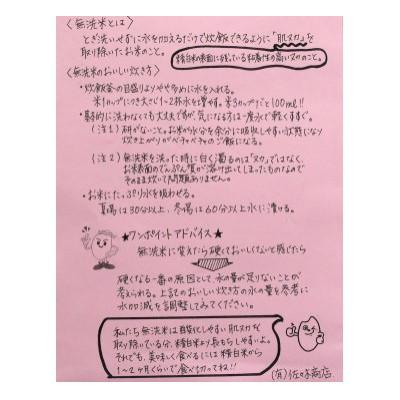 〈無洗米とは〉
とぎ洗いせずに水を加えるだけで炊飯できるように「肌ヌカ」を
取り除いたお米のこと。
精白米の表面に残っている粘着性の高いヌカのこと。
〈無洗米のおいしい炊き方〉
・炊飯釜の目盛りよりやや多めに水を入れる。
米1カップにつき大さじ1〜2杯水を増やす。米3カップだと100ml!!
・基本的に洗わなくても大丈夫ですが、気になる方は一度水で軽くすすぐ。
(注1) 研がないこと。お米が水分を余分に吸収しやすい状態になり
炊き上がりがベチャベチャのご飯になる。
(注2) 無洗米を洗った時に白く濁るのは「ヌカ」ではなく、
お米表面のでんぷん質が溶け出てしまったものなので
そのまま炊いて問題ありません。
・お米にたっぷり水を吸わせる。
夏場は30分以上、冬場は60分以上水に漬ける。
★ワンポイントアドバイス★
無洗米に変えたら硬くておいしくないと感じたら
硬くなる一番の原因として、水の量が足りないことが
考えられる。上記のおいしい炊き方の水の量を参考に
水加減を調整してみてください。
私たち無洗米は酸化しやすい肌ヌカを
取り除いている分、精白米より長もちしますよ。
それでも、美味しく食べるには精白米から
1〜2ヶ月くらいで食べ切ってね!!
(有)佐々木商店